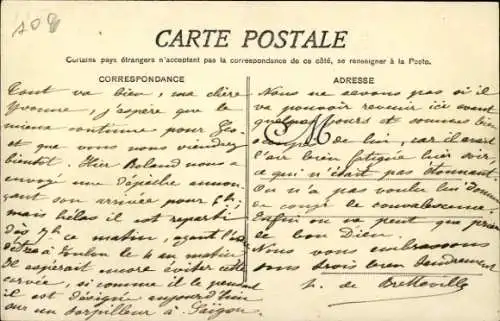 108
CARTE POSTALE
Certains pays étrangers n'acceptent pas la correspondance de ce côté, se renseigner à la Poste.
CORRESPONDANCE
Tout va bien, ma chère
Yvonne, j'espère que le
mieux continue pour
et que vous nous viendrez
bientôt. Hier Roland nous a
envoyé une dépêche annon-
çant son arrivée pour 6h
mais hélas il est reparti
dès 7h ce matin, ayant l'
à Toulon le 4 au matin
Il espérait encore éviter cette
corvée, si comme il le pense
il est désigné aujourd'hui
sur un torpilleur à Saïgon.
ADRESSE
Nous ne savons pas si il
va pouvoir revenir ici avant
quelques jours et sommes
de lui, car il avait
l'air bien fatigué hier soir
ce qui n'était pas étonnant.
On n'a pas voulu lui donner
de congé de convalescence.
Enfin on ne peut que prier
le bon Dieu.
Nous vous embrassons
tous trois bien tendrement
de Bretteville
CM